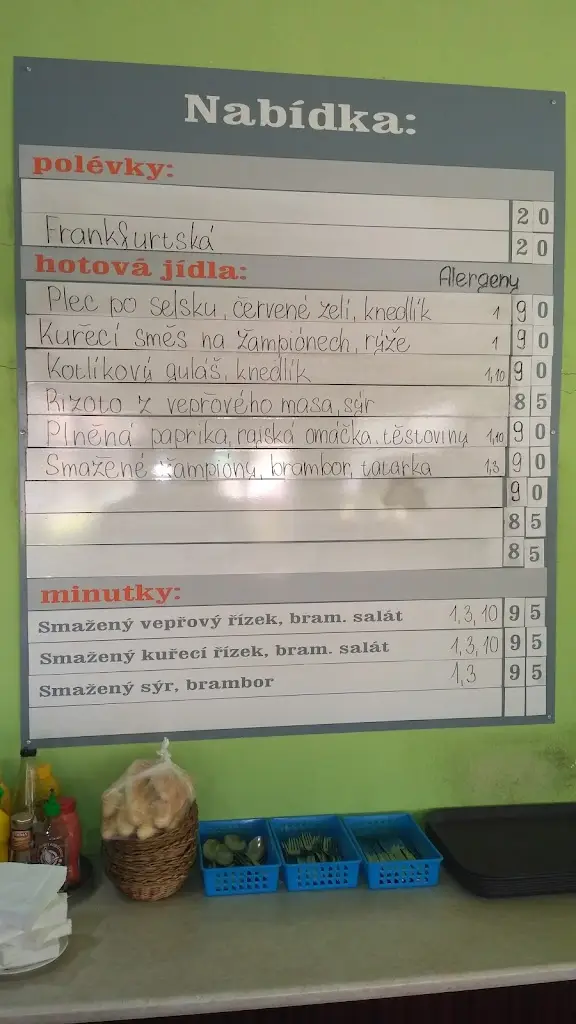 Nabídka:
polévky:
20
Frankfurtská 20
hotová jídla: Alergeny
Plec po selsku, červené zelí, knedlík 1 90
Kuřecí směs na žampiónech, rýže 1 90
Kotlíkový guláš, knedlík 1,10 90
Rizoto z vepřového masa, sýr 85
Plněná paprika, rajská omáčka, těstoviny 1,10 90
Smažené žampióny, brambor, tatarka 1,3 90
90
85
85
minutky:
Smažený vepřový řízek, bram. salát 1,3,10 95
Smažený kuřecí řízek, bram. salát 1,3,10 95
Smažený sýr, brambor 1,3 95